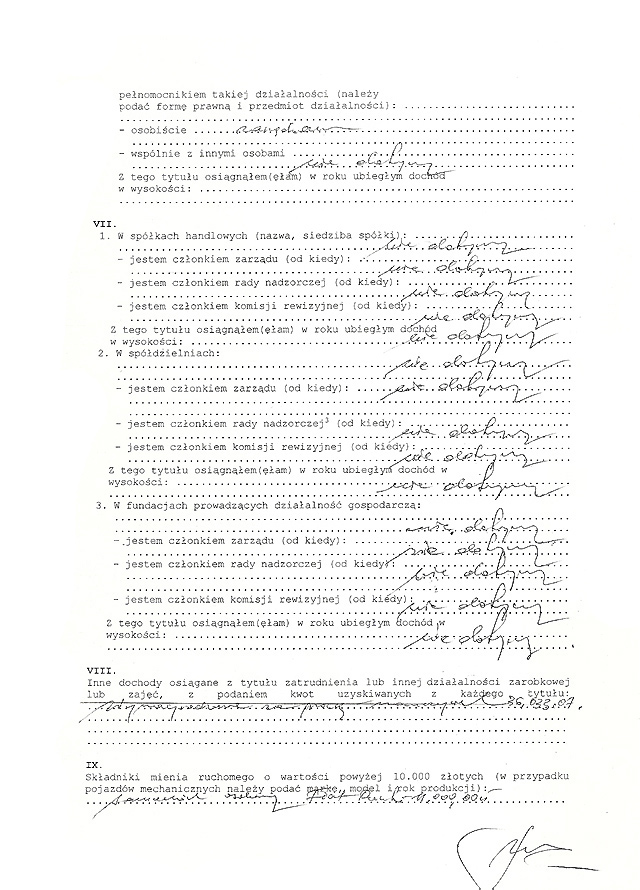 pełnomocnikiem takiej działalności (należy
podać formę prawną i przedmiot działalności): ............................
............................................................................
- osobiście ............................................................
............................................................................
- wspólnie z innymi osobami .............................................
nie dotyczy
Z tego tytułu osiągnąłem(ęłam) w roku ubiegłym dochód
w wysokości: .............................................................
............................................................................
VII.
1. W spółkach handlowych (nazwa, siedziba spółki): .......................
nie dotyczy
- jestem członkiem zarządu (od kiedy): ...................................
nie dotyczy
- jestem członkiem rady nadzorczej (od kiedy): ...........................
nie dotyczy
- jestem członkiem komisji rewizyjnej (od kiedy): ........................
nie dotyczy
Z tego tytułu osiągnąłem(ęłam) w roku ubiegłym dochód
w wysokości: ........ nie dotyczy
2. W spółdzielniach:
nie dotyczy
............................................................................
- jestem członkiem zarządu (od kiedy): ...... nie dotyczy
............................................................................
- jestem członkiem rady nadzorczej³ (od kiedy): ..........................
nie dotyczy
- jestem członkiem komisji rewizyjnej (od kiedy): ........................
nie dotyczy
Z tego tytułu osiągnąłem(ęłam) w roku ubiegłym dochód w
wysokości: ........ nie dotyczy
............................................................................
3. W fundacjach prowadzących działalność gospodarczą:
............................................................................
nie dotyczy
- jestem członkiem zarządu (od kiedy): ...................................
nie dotyczy
- jestem członkiem rady nadzorczej (od kiedy): ...........................
nie dotyczy
............................................................................
- jestem członkiem komisji rewizyjnej (od kiedy): ........................
nie dotyczy
Z tego tytułu osiągnąłem(ęłam) w roku ubiegłym dochód w
wysokości: ...............................................................
nie dotyczy
VIII.
Inne dochody osiągane z tytułu zatrudnienia lub innej działalności zarobkowej
lub zajęć, z podaniem kwot uzyskiwanych z każdego tytułu:
............................................................................
............................................................................
............................................................................
............................................................................
IX.
Składniki mienia ruchomego o wartości powyżej 10.000 złotych (w przypadku
pojazdów mechanicznych należy podać markę, model i rok produkcji):
Samochód osobowy Fiat